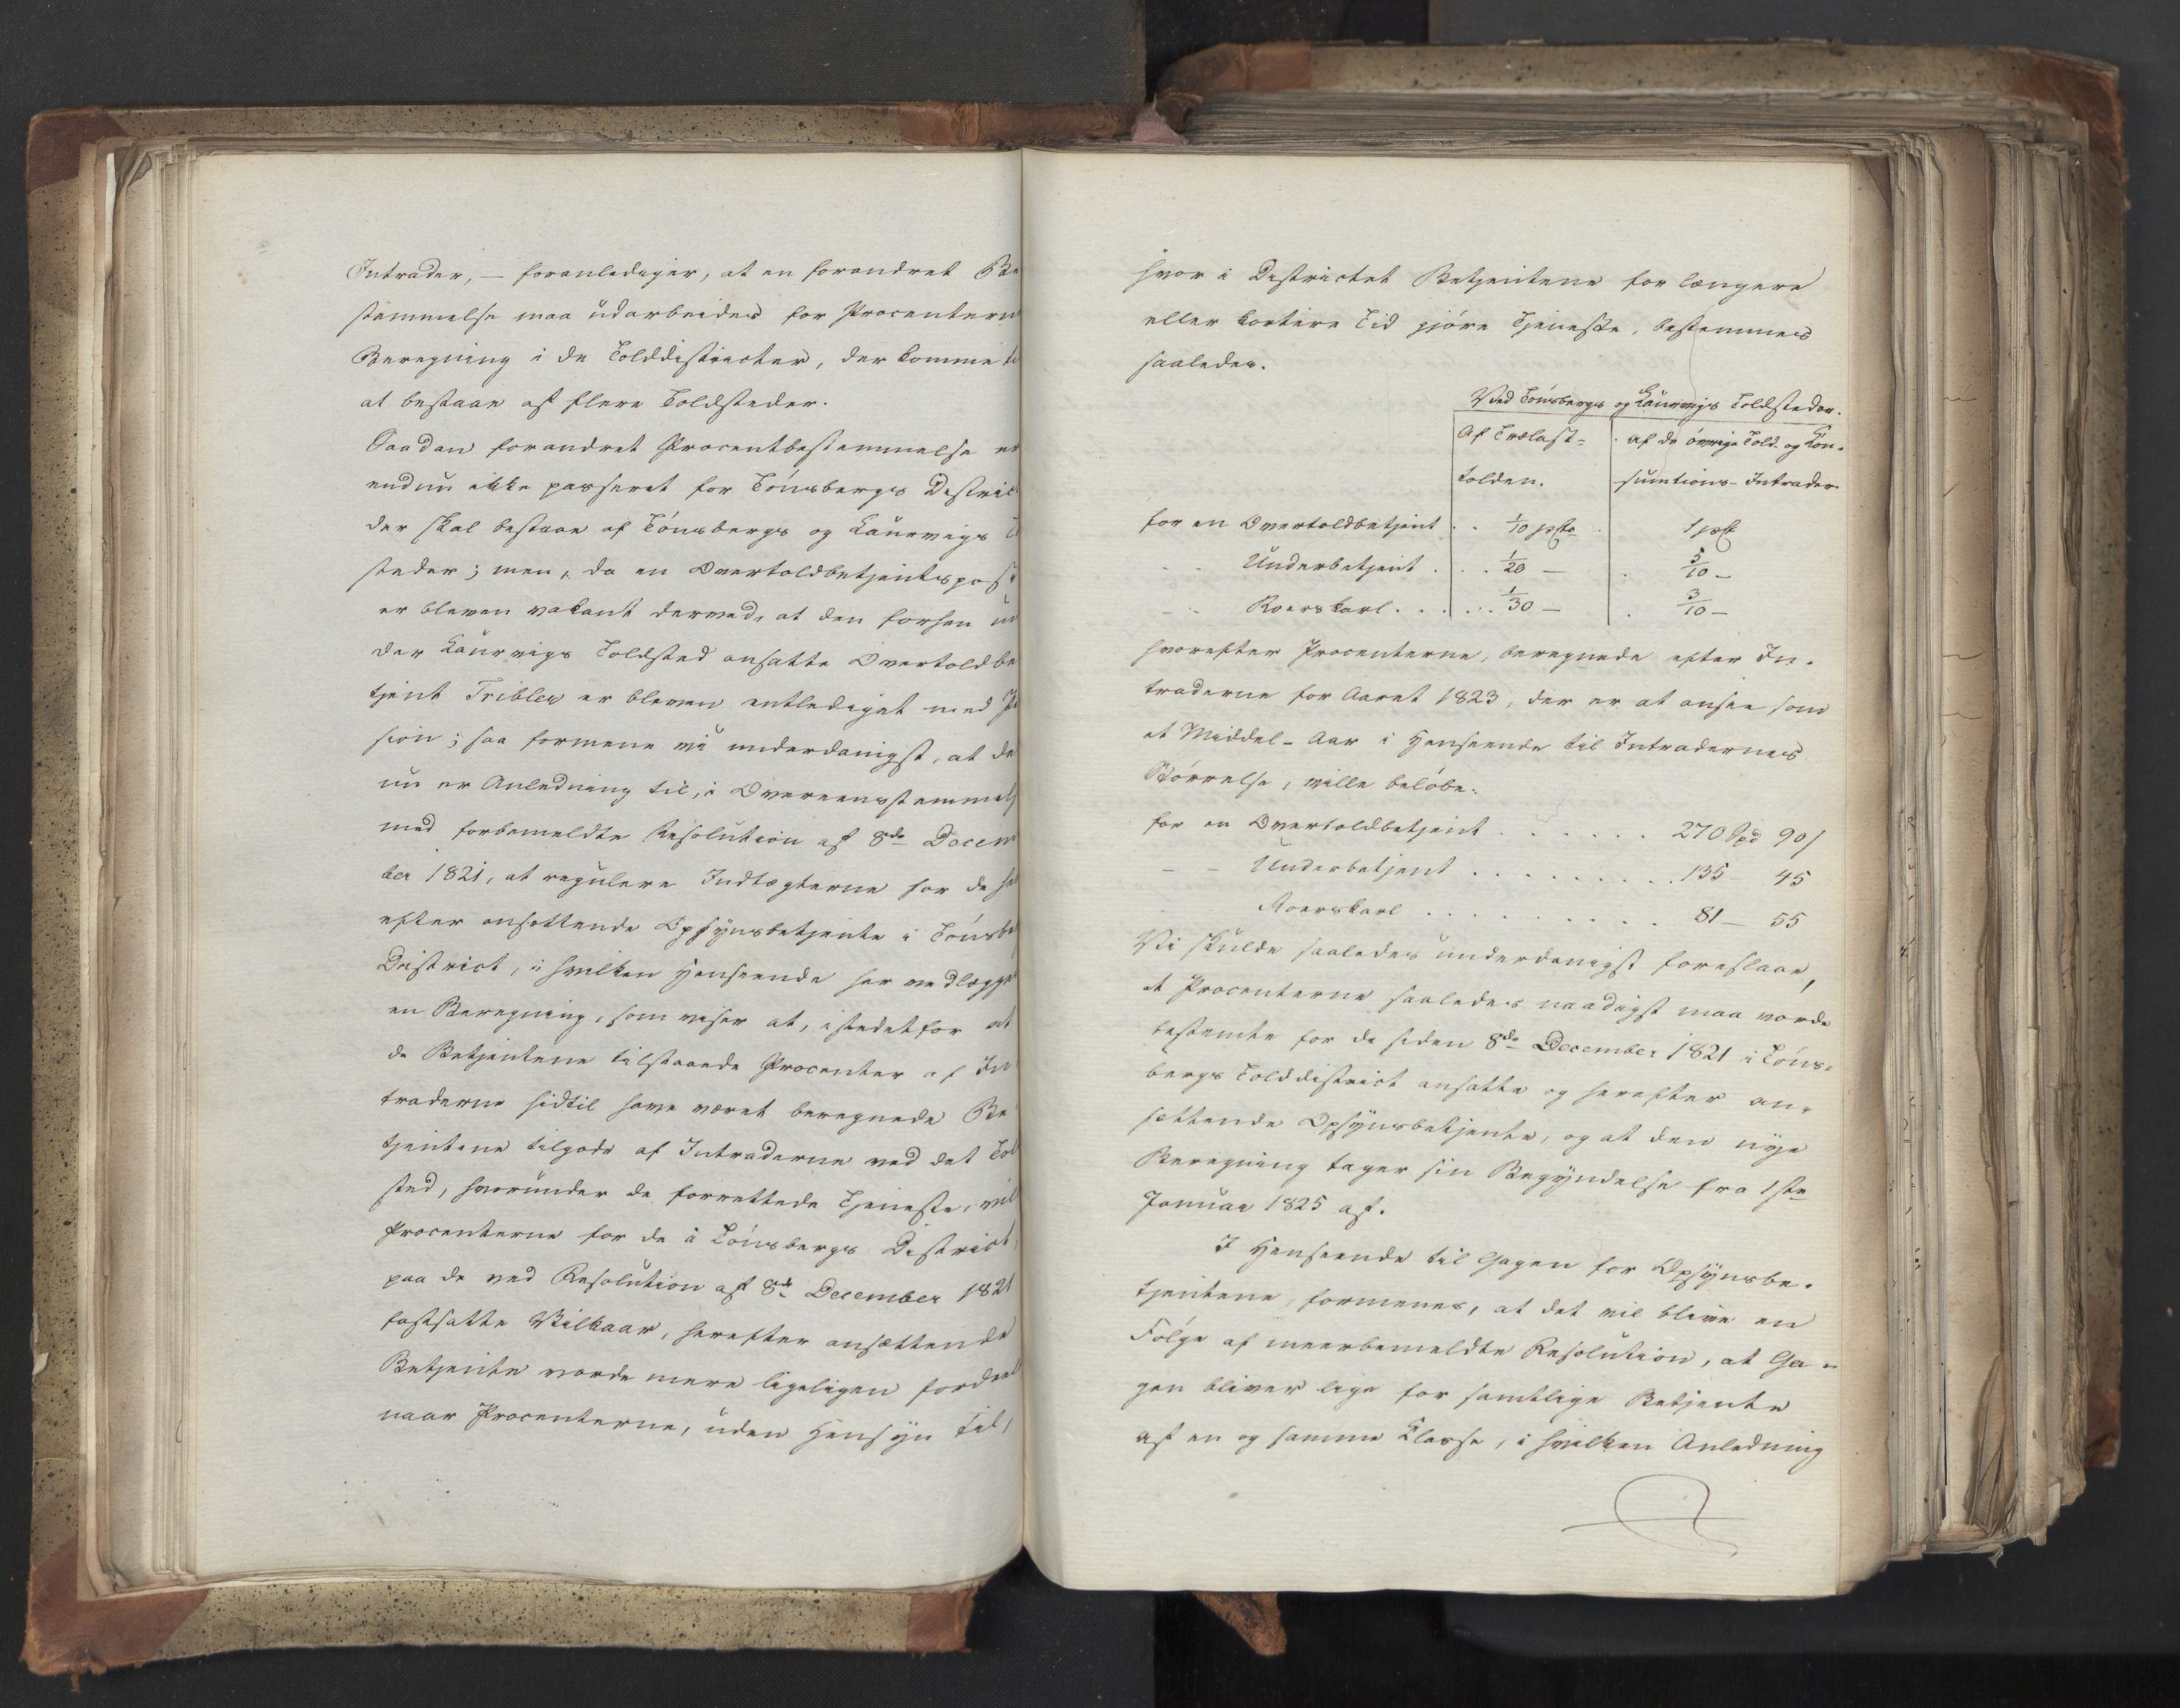 Intrader, — foranlediger, at en forandret Be
stemmelse maa udarbeides for Procenterne
Beregning i de Tolddistricter, der komme til
at bestaae af flere Toldsteder.
Saadan forandret Procentbestemmelse er
endnu ikke passeret for Tönsbergs District
der skal bestaae af Tönsbergs og Laurvigs
steder; men, da en Overtoldbetjentspost
er bleven vakant derved, at den forhen un
der Laurvigs Toldsted ansatte Overtoldbe
tjent Tribler er bleven entlediget med Pen
sion; saa formene vi underdanigst, at der
nu er Anledning til, i Overeensstemmelse
med forbemeldte Resolution af 8de Decem
ber 1821, at regulere Indtægterne for de her
efter ansættende Opsynsbetjente i Tönsbe
District, i hvilken Henseende her vedlægges
en Beregning, som viser at, istedetfor at
de Betjentene tilstaaede Procenter af In
traderne hidtil have været beregnede Be
tjentene tilgode af Intraderne ved det Told
sted, hvorunder de forrettede Tjeneste, vil
Procenterne for de i Tönsbergs District,
paa de ved Resolution af 8de December 1821
fastsatte Vilkaar, herefter ansættende
Betjente vorde mere ligeligen fordeelt
naar Procenterne, uden Hensyn til,
hvor i Districtet Betjentene for længere
eller kortere Tid gjöre Tjeneste, bestemmes
saaledes.
Ved Tönsbergs og Laurvigs Toldsteder.
Af Trælast- af de övrige Told- og Kon-
tolden. sumtions-Intrader
for en Overtoldbetjent . . 1/10 pCto . 1 pCt
- - Underbetjent . . . 1/20 — . 5/10 —
- - Roerskarl . . . . . . 1/30 — . 3/10 —
hvorefter Procenterne, beregnede efter In-
traderne for Aaret 1823, der er at ansee som
et Middel-Aar i Henseende til Intradernes
Störrelse, ville belöbe:
for en Overtoldbetjent . . . . . . 270 Spd 90 ſ
- - Underbetjent . . . . . . . . . 135 — 45
Roerskarl . . . . . . . . . 81 — 55
Vi skulde saaledes underdanigst foreslaae,
at Procenterne saaledes naadigst maa vorde
bestemte for de siden 8de December 1821 i Töns-
bergs Tolddistrict ansatte og herefter an-
sættende Opsynsbetjente, og at den nye
Beregning tager sin Begyndelse fra 1ste
Januar 1825 af.
I Henseende til Gagen for Opsynsbe-
tjentene, formenes, at det vil blive en
Fölge af meerbemeldte Resolution, at Ga-
gen bliver lige for samtlige Betjente
af en og samme Klasse, i hvilken Anledning